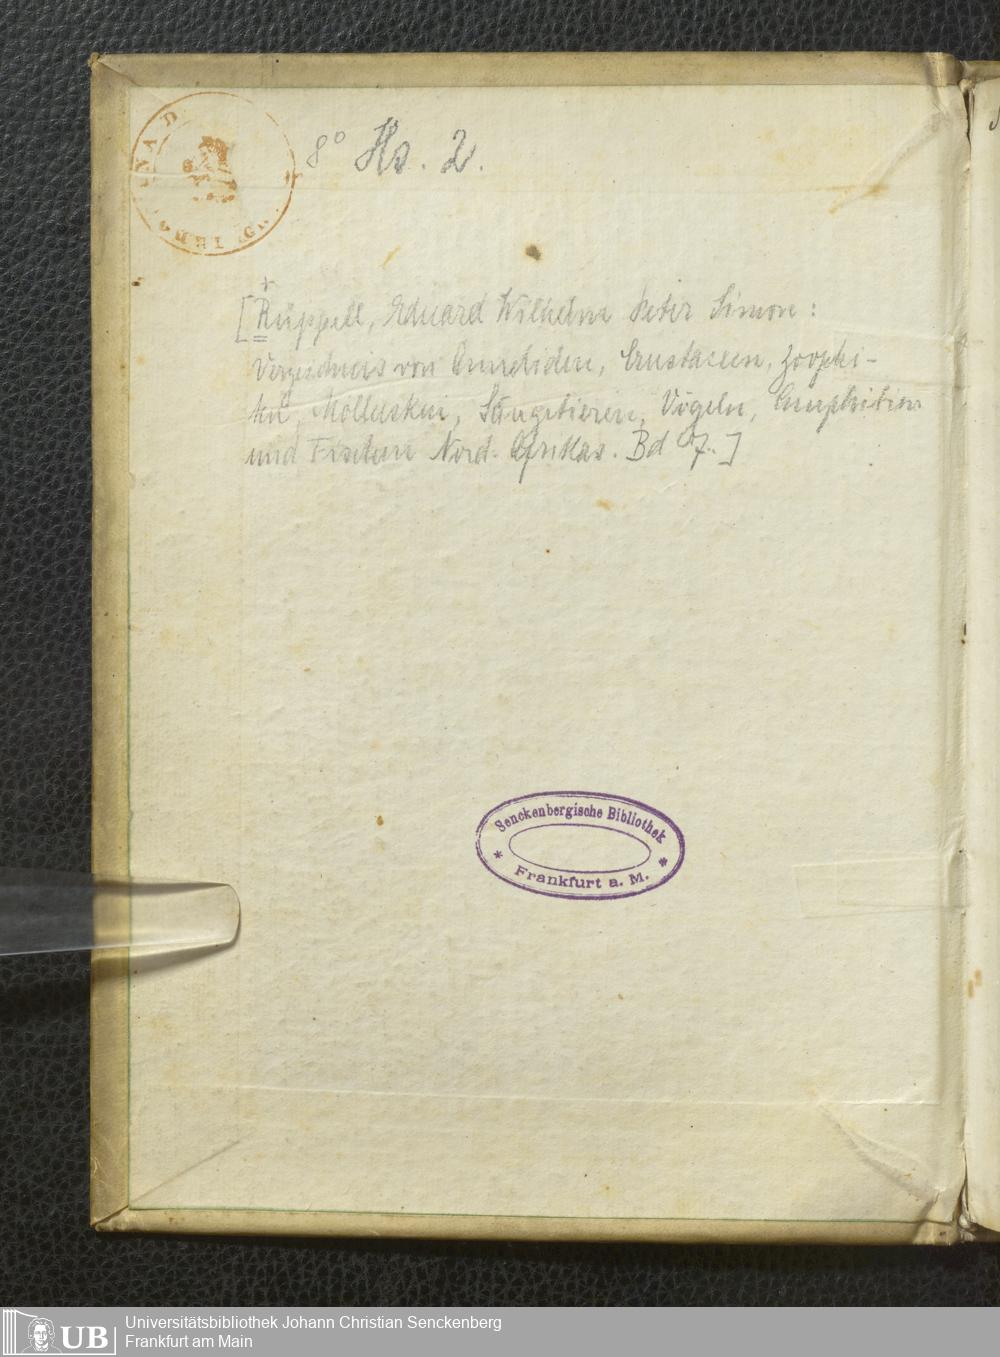 8° Hs. 2.
[Rüppell, Eduard Wilhelm Peter Simon:
Verzeichnis von Anneliden, Crustaceen, Zoophi-
ten, Mollusken, Säugetieren, Vögeln, Amphibien
und Fischen Nord-Afrikas. Bd 7.]
Senckenbergische Bibliothek
* *
Frankfurt a. M.
UB
Universitätsbibliothek Johann Christian Senckenberg
Frankfurt am Main